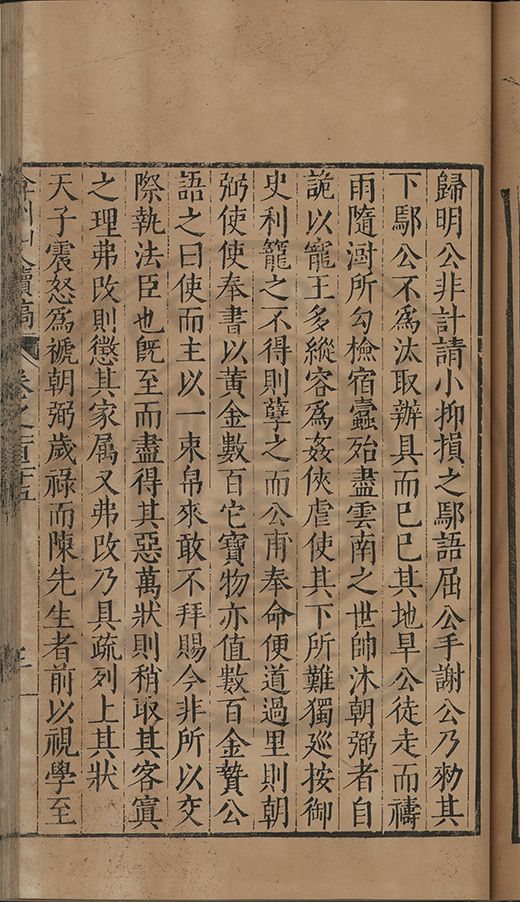 歸明公非計請小抑損之鄢語屈公手謝公乃勑其
下鄢公不爲汰取辦具而已已其地旱公徒走而禱
雨隨澍所勾檢宿蠹殆盡雲南之世帥沐朝弼者自
詭以寵王多縱容爲姦俠虐使其下所難獨巡按御
史利籠之不得則孽之而公甫奉命便道過里則朝
弼使使奉書以黃金數百它寶物亦值數百金贄公
語之曰使而主以一束帛來敢不拜賜今非所以交
際執法臣也旣至而盡得其惡萬狀則稍取其客寘
之理弗改則懲其家属又弗改乃具疏列上其狀
天子震怒爲褫朝弼歲祿而陳先生者前以視學至
續稿 卷之一百十五